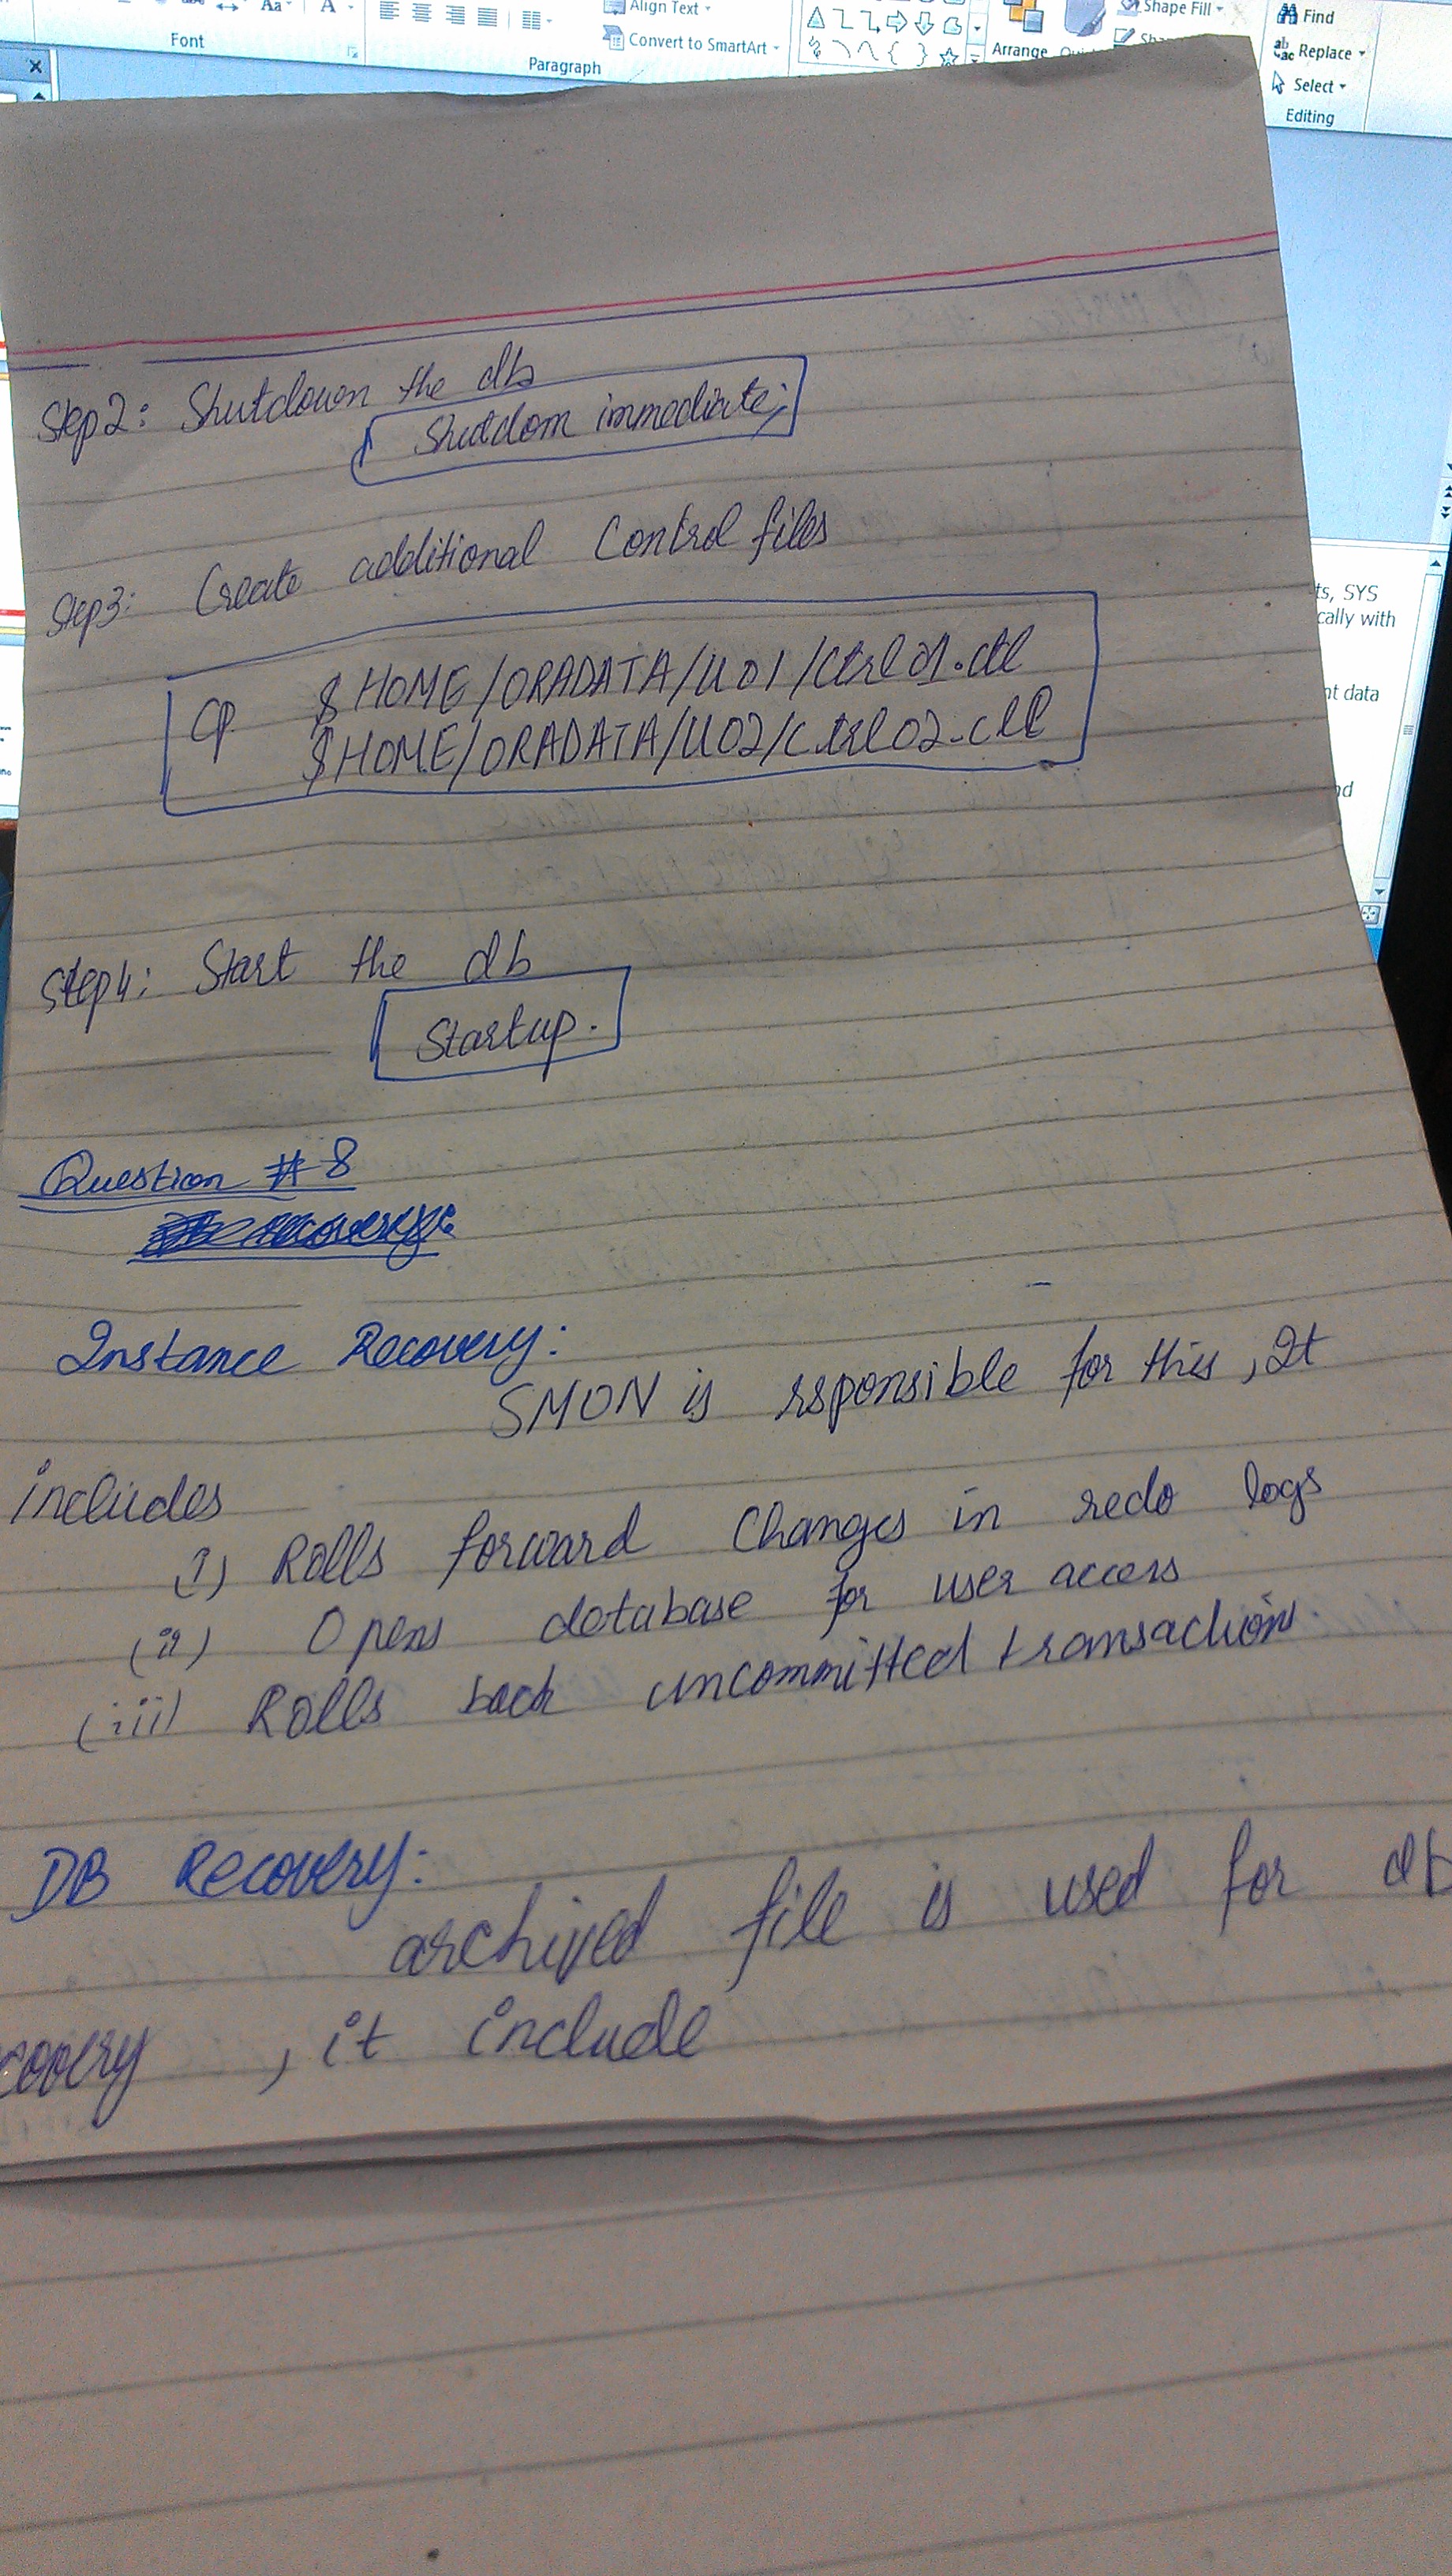 Aa
A
Align Text
Convert to SmartArt
Shape Fill
Arrange
Find
Replace
Select
Font
Paragraph
Editing
Step2: Shutdown the db
Shutdom immediate;
Step3: Create additional Control files
ts, SYS
cally with
CP $HOME/ORADATA/U01/Ctrl01.ctl
$HOME/ORADATA/U02/Ctrl02.ctl
nt data
nd
Step4: Start the db
Startup.
Question #8
recovery:
Instance Recovery:
SMON is rsponsible for this, It
includes
(i) Rolls forward Changes in redo logs
(ii) Opens database for user access
(iii) Rolls back uncommitted transaction.
DB Recovery:
archived file is used for db
covery, it include